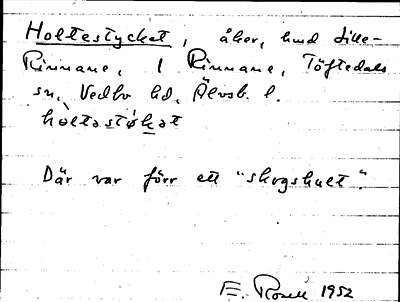 Holtestycket, åker, hmd Lille-
Rinnane, 1 Rinnane, Töftedals
sn, Vedbo hd, Älvsb. l.
hòltəstỳkət
Där var förr ett "skogshult".
E. Rosell 1952